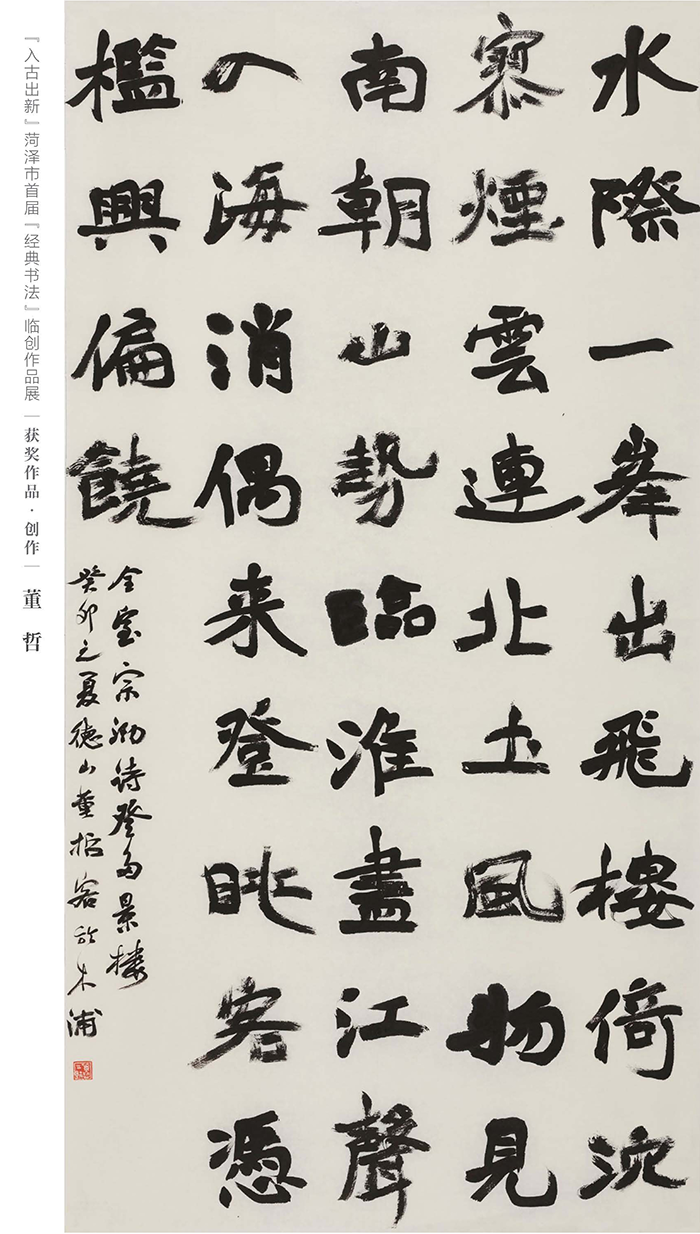 水際一峯出飛樓倚沈
寥煙雲連北土風物見
南朝山勢臨淮盡江聲
入海消偶来登眺客憑
檻興偏饒
全室宗泐詩登多景楼
癸卯之夏德山董哲客於木浦
『入古出新』菏泽市首届『经典书法』临创作品展｜获奖作品·创作｜董 哲